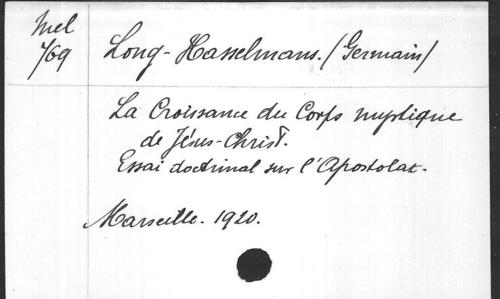 Mel
769
Long-Hasselmans. (Germain)
La Croissance du Corps mystique
de Jésus-Christ.
Essai doctrinal sur l'Apostolat.
Marseille. 1920.